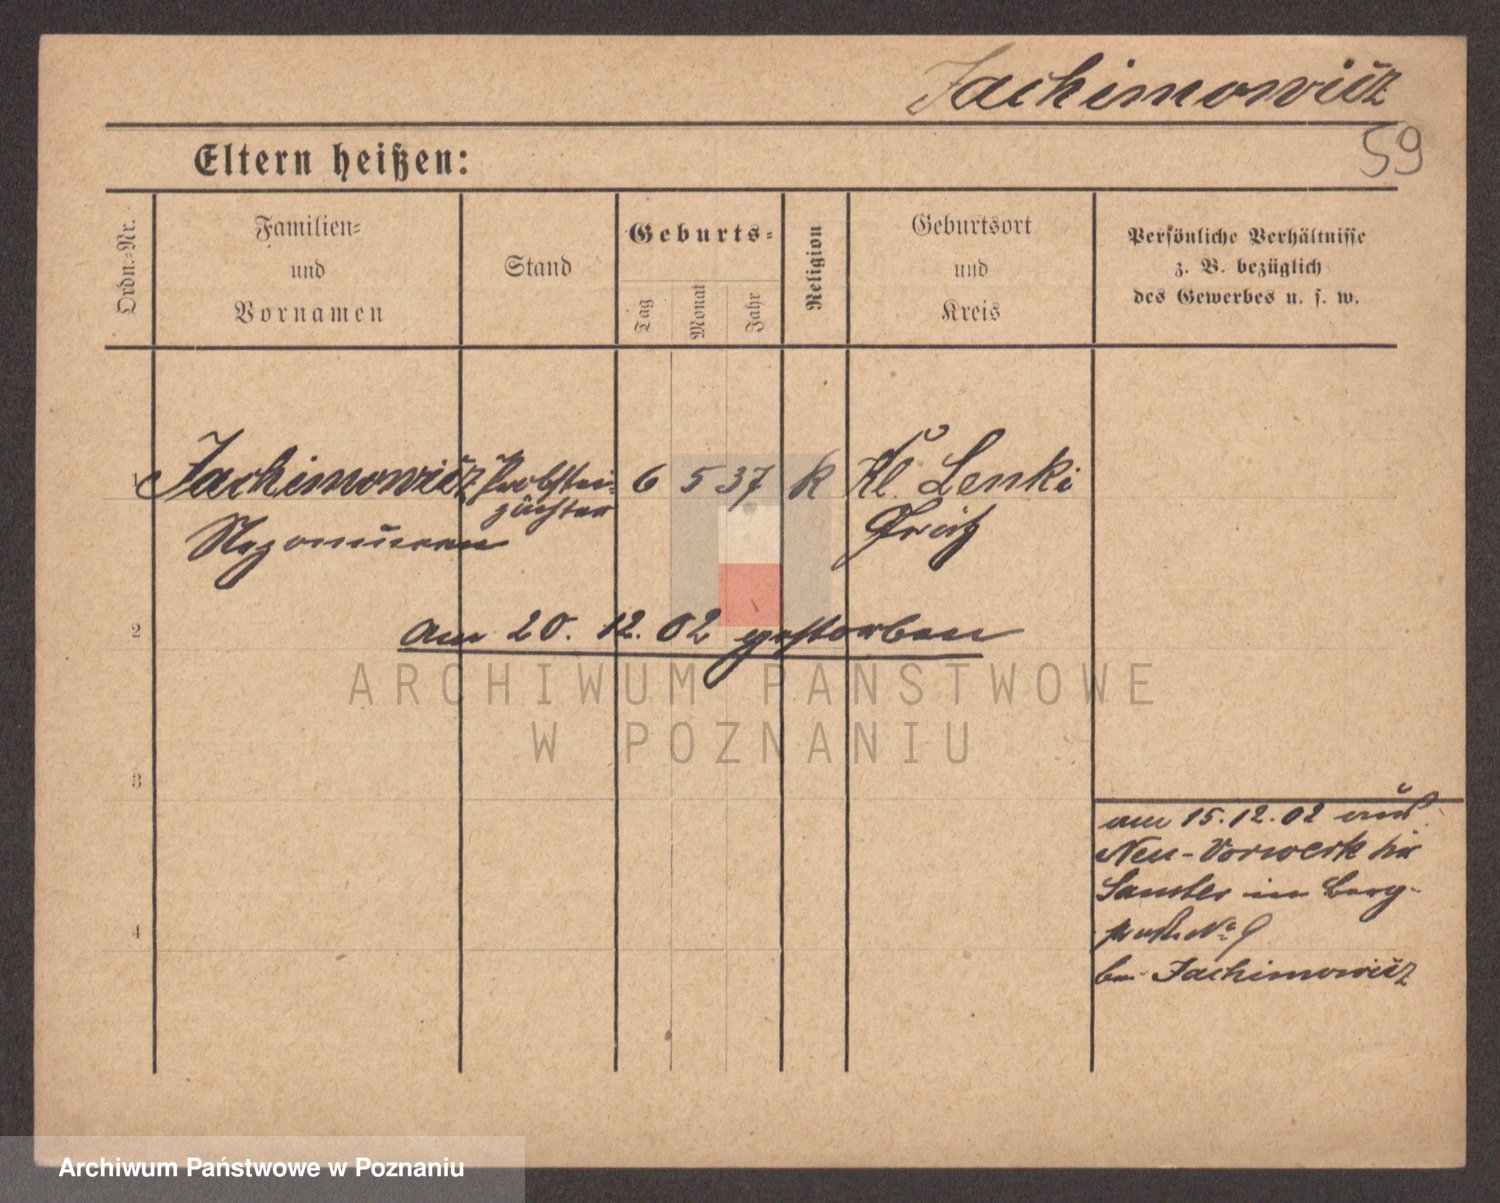 Jachimowicz
59
Eltern heißen:
Ordn.-Nr.
Familien-
und
Vornamen
Stand
Geburts-
Tag
Monat
Jahr
Religion
Geburtsort
und
Kreis
Persönliche Verhältnisse
z. B. bezüglich
des Gewerbes u. s. w.
Jachimowicz Probstei-
pächter 6 5 37 k Kl. Lenki
Nepomucen Grätz
2
am 20. 12. 02 gestorben
ARCHIWUM PAŃSTWOWE
W POZNANIU
3
am 15. 12. 02 aus
Neu-Vorwerk
Samter in Berg-
No 9
Jachimowicz
4
Archiwum Państwowe w Poznaniu